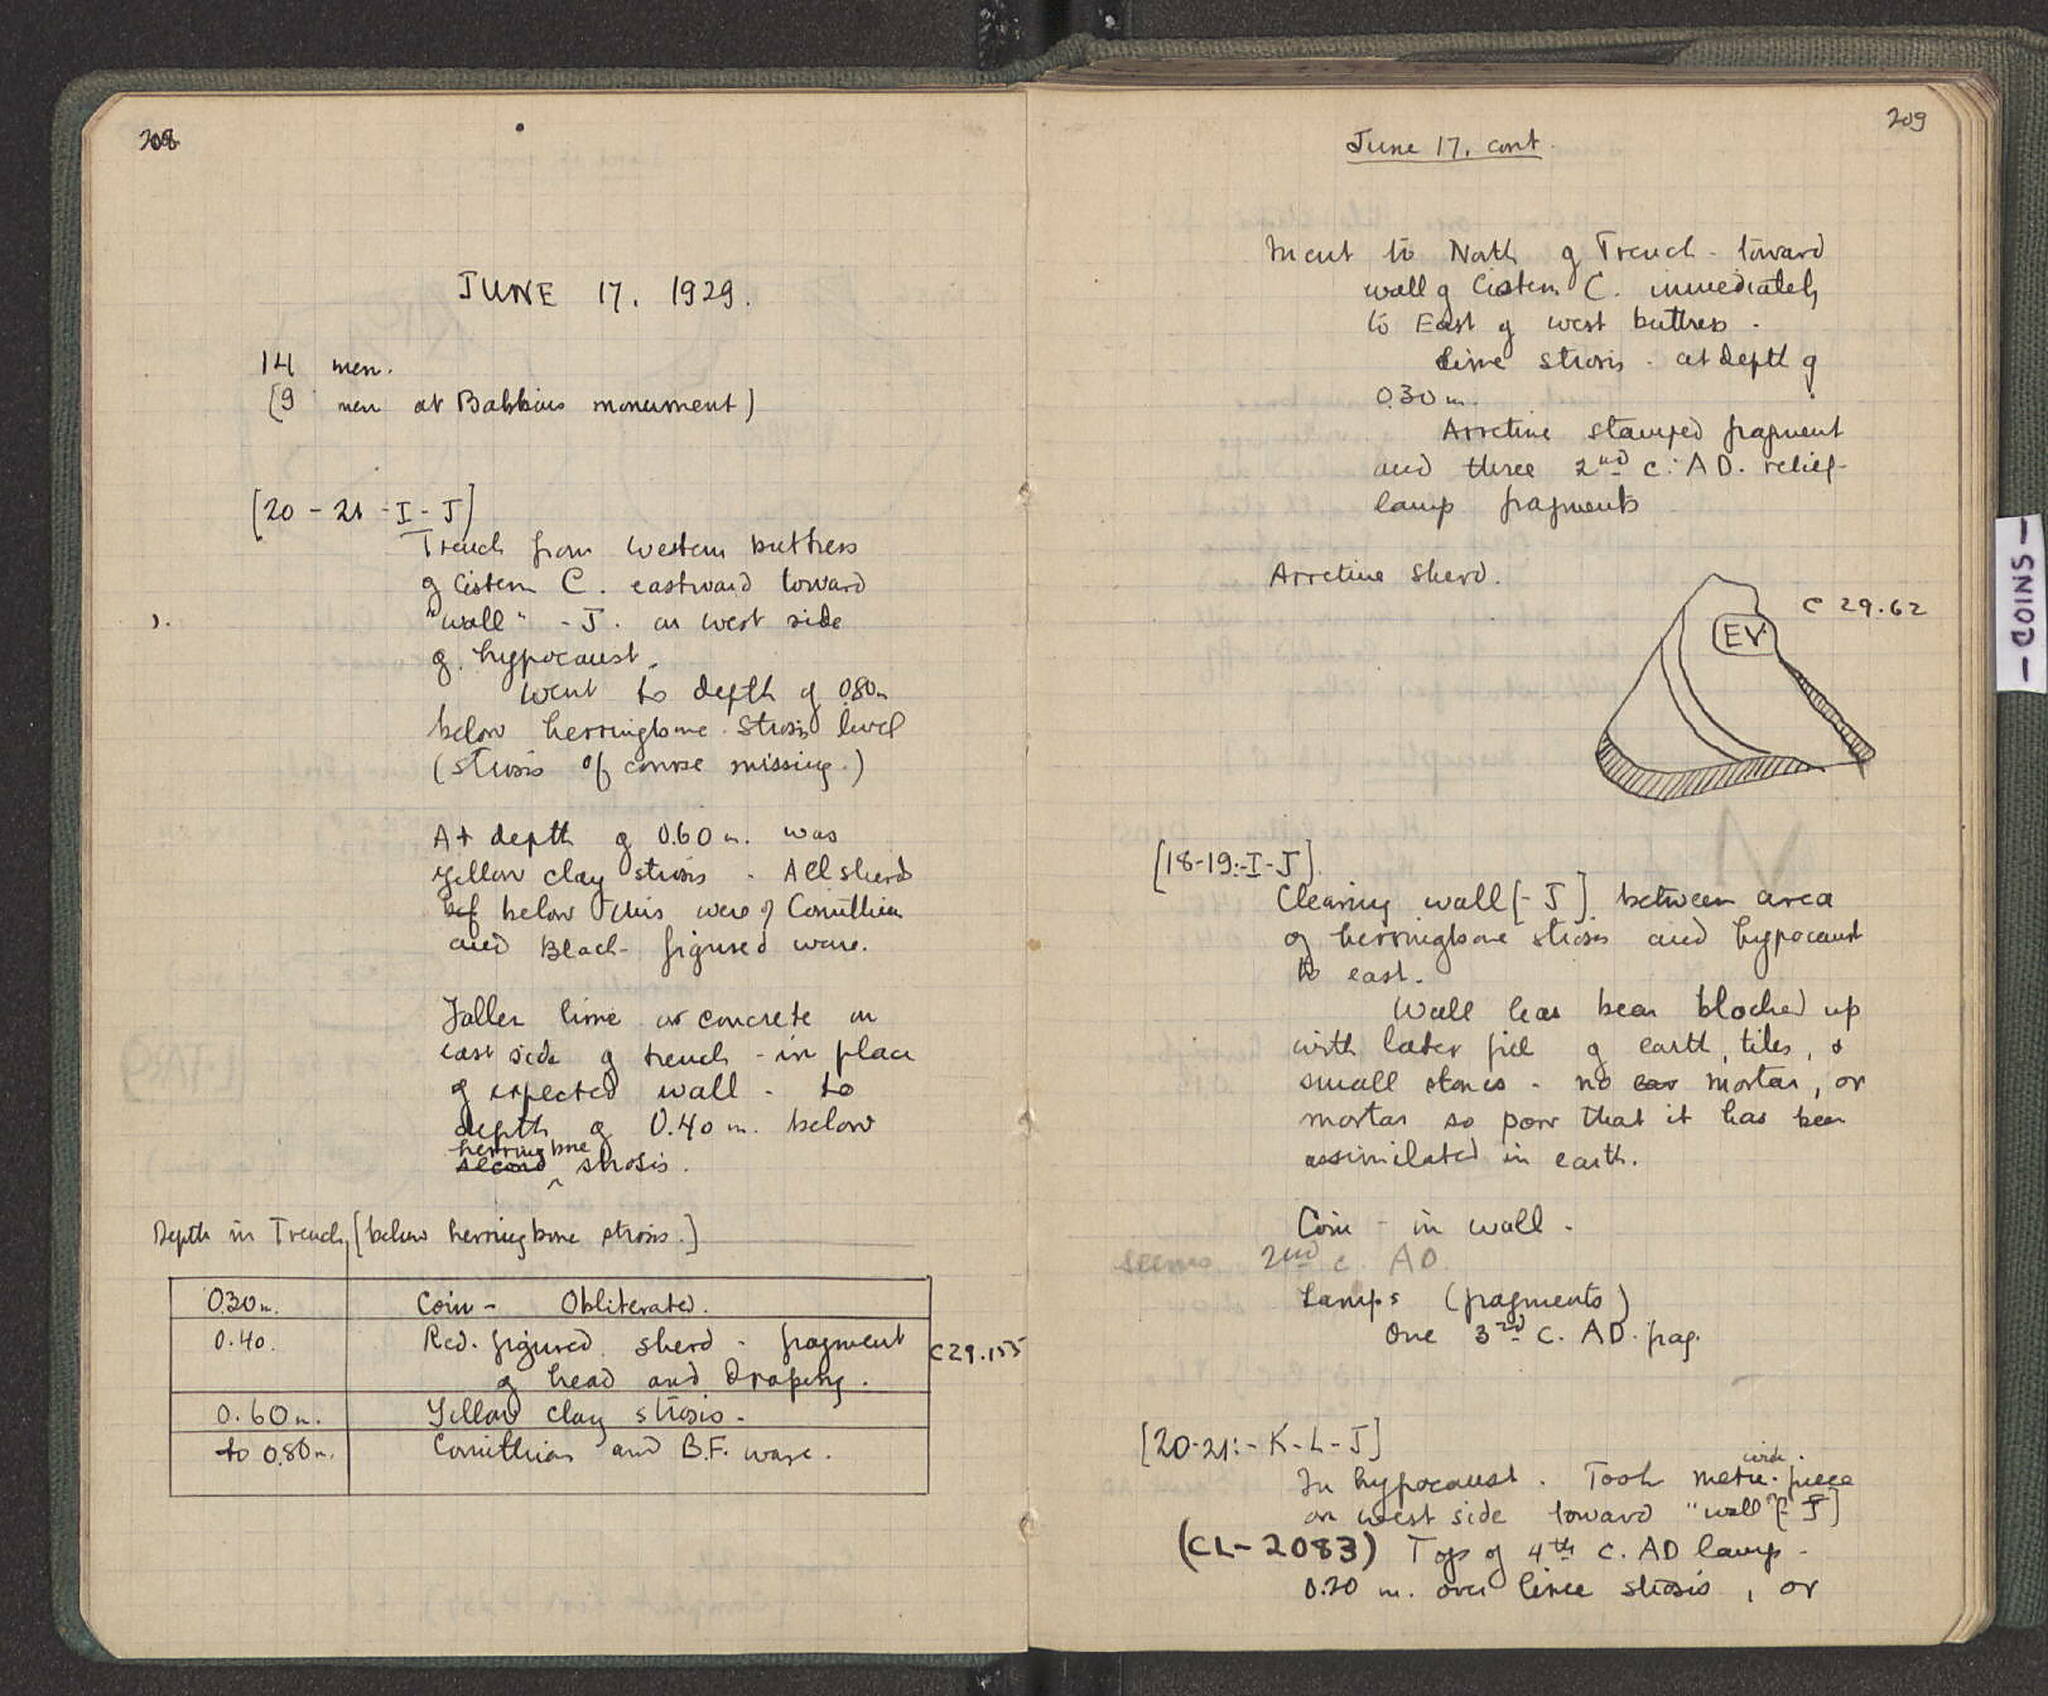 208
JUNE 17. 1929.
14 men.
(9 men at Babbius monument)
[20-21-I-J]
Trench from western buttress
of Cistern C. eastward toward
"wall" -J. on west side
of hypocaust.
Went to depth of 0.80 m
below herringbone strosis level
(strosis of course missing.)
At depth of 0.60 m. was
yellow clay strosis. All sherds
below this were of Corinthian
and Black-figured ware.
Fallen lime or concrete on
east side of trench - in place
of expected wall - to
depth of 0.40 m. below
herringbone
second ^ strosis.
Depth in Trench [below herringbone strosis.]
0.30 m. Coin - Obliterated.
0.40. Red. figured sherd - fragment C 29.155
of head and Drapery.
0.60 m. Yellow clay strosis.
to 0.80 m. Corinthian and B.F. ware.
209
June 17. cont.
Went to North of Trench - toward
wall of Cistern C. immediately
to East of west buttress.
Lime strosis - at depth of
0.30 m.
Arretine stamped fragment
and three 2nd c. AD. relief-
lamp fragments
Arretine Sherd.
C 29.62
EV
[18-19:-I-J].
Clearing wall [-J]. between area
of herringbone strosis and hypocaust
to east.
Wall has been blocked up
with later fill of earth, tiles, &
small stones - no mortar, or
mortar so poor that it has been
assimilated in earth.
Coin - in wall -
seems 2nd c. AD.
Lamps (fragments)
One 3rd c. AD. frag.
[20-21:-K-L-J]
wide.
In hypocaust. Took metre. piece
on west side toward "wall" [-J]
(CL-2083) Top of 4th c. AD lamp -
0.20 m. over lime strosis, or
- COINS -